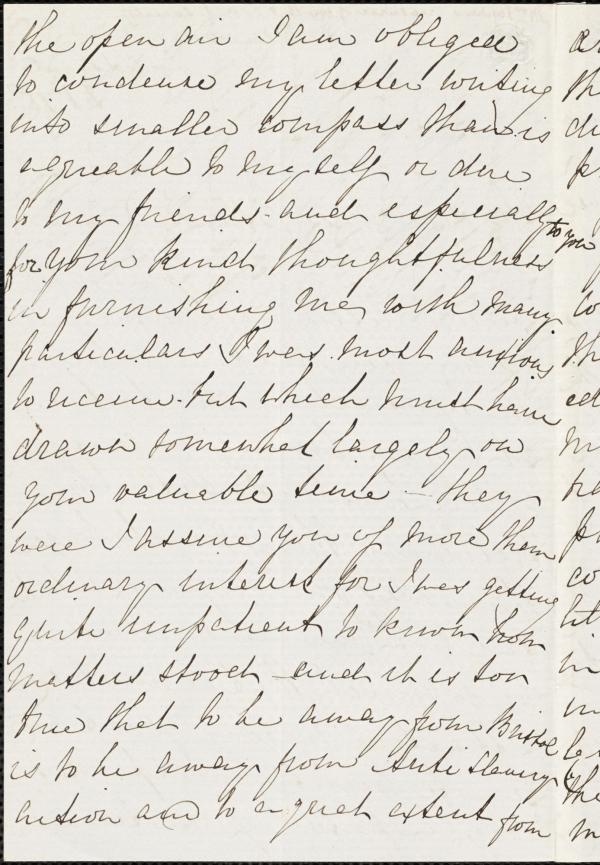 the open air I am obliged
to condense my letter writing
into smaller compass than is
agreeable to myself or due
to my friends - and especially to you
for your kind thoughtfulness
in furnishing me with many
particulars I was most anxious
to receive - but which must have
drawn somewhat largely on
your valuable time - they
were I assure you of more than
ordinary interest for I was getting
quite impatient to know how
matters stood - and it is too
true that to be away from Bristol
is to be away from Anti Slavery
action and to a great extent from